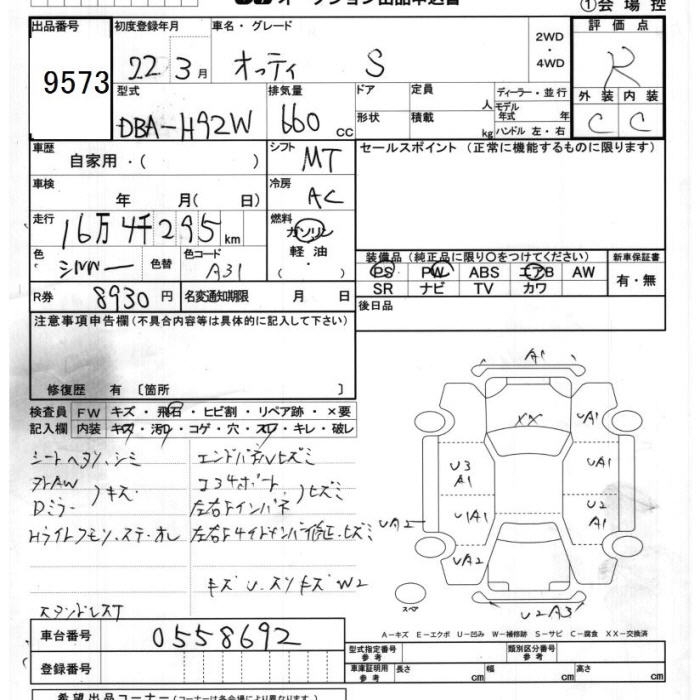 オークション出品申込書 ①会場控
出品番号 初度登録年月 車名・グレード 2WD ・ 4WD 評価点
9573 22年3月 オッティ S R
型式 排気量 ドア 定員 人 ディーラー・並行 外装 内装
DBA-H92W 660 cc 形状 積載 kg モデル年式 年 ハンドル 左・右 C C
車歴 自家用・( ) シフト MT セールスポイント (正常に機能するものに限ります)
車検 年 月( 日) 冷房 AC
走行 16万4千295km 燃料 ガソリン 軽油 ・( )
色 シルバー 色替 色コード A31
装備品 (純正品に限り○をつけてください) 新車保証書
PS PW ABS エアB AW 有・無
SR ナビ TV カワ
R券 8930円 名変通知期限 月 日 後日品
注意事項申告欄(不具合内容等は具体的に記入して下さい)
修復歴 有 [箇所 ]
検査員 FW キズ・飛石・ヒビ割・リペア跡・×要
記入欄 内装 キズ・汚レ・コゲ・穴・スレ・キレ・破レ
シートヘタリ、シミ エンドパネルヒズミ
Dミラー 左右
スタンドレスT
A1
XX
UA1 UA1
U3 A1 U2 A1
U1A1
UA2 UA2
スペア U2A3
A-キズ E-エクボ U-凹み W-補修跡 S-サビ C-腐食 XX-交換済
車台番号 0558692 型式指定番号 参考 類別区分番号 参考
登録番号 車庫証明用 参考 長さ cm 幅 cm 高さ cm
希望出品コーナー(コーナーは各会場により異なります)